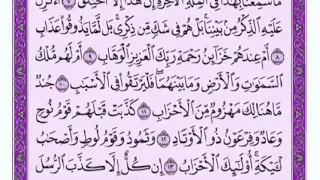 مَا سَمِعْنَا بِهَٰذَا فِي ٱلْمِلَّةِ ٱلْءَاخِرَةِ إِنْ هَٰذَآ إِلَّا ٱخْتِلَٰقٌ ٧ أَءُنزِلَ
عَلَيْهِ ٱلذِّكْرُ مِنۢ بَيْنِنَا ۚ بَلْ هُمْ فِي شَكٍّ مِّن ذِكْرِي ۖ بَل لَّمَّا يَذُوقُوا۟ عَذَابِ
٨ أَمْ عِندَهُمْ خَزَآئِنُ رَحْمَةِ رَبِّكَ ٱلْعَزِيزِ ٱلْوَهَّابِ ٩ أَمْ لَهُم مُّلْكُ
ٱلسَّمَٰوَٰتِ وَٱلْأَرْضِ وَمَا بَيْنَهُمَا ۖ فَلْيَرْتَقُوا۟ فِي ٱلْأَسْبَٰبِ ١٠
جُندٌ مَّا هُنَالِكَ مَهْزُومٌ مِّنَ ٱلْأَحْزَابِ ١١ كَذَّبَتْ قَبْلَهُمْ قَوْمُ نُوحٍ
وَعَادٌ وَفِرْعَوْنُ ذُو ٱلْأَوْتَادِ ١٢ وَثَمُودُ وَقَوْمُ لُوطٍ وَأَصْحَٰبُ
لْـَٔيْكَةِ ۚ أُو۟لَٰٓئِكَ ٱلْأَحْزَابُ ١٣ إِن كُلٌّ إِلَّا كَذَّبَ ٱلرُّسُلَ